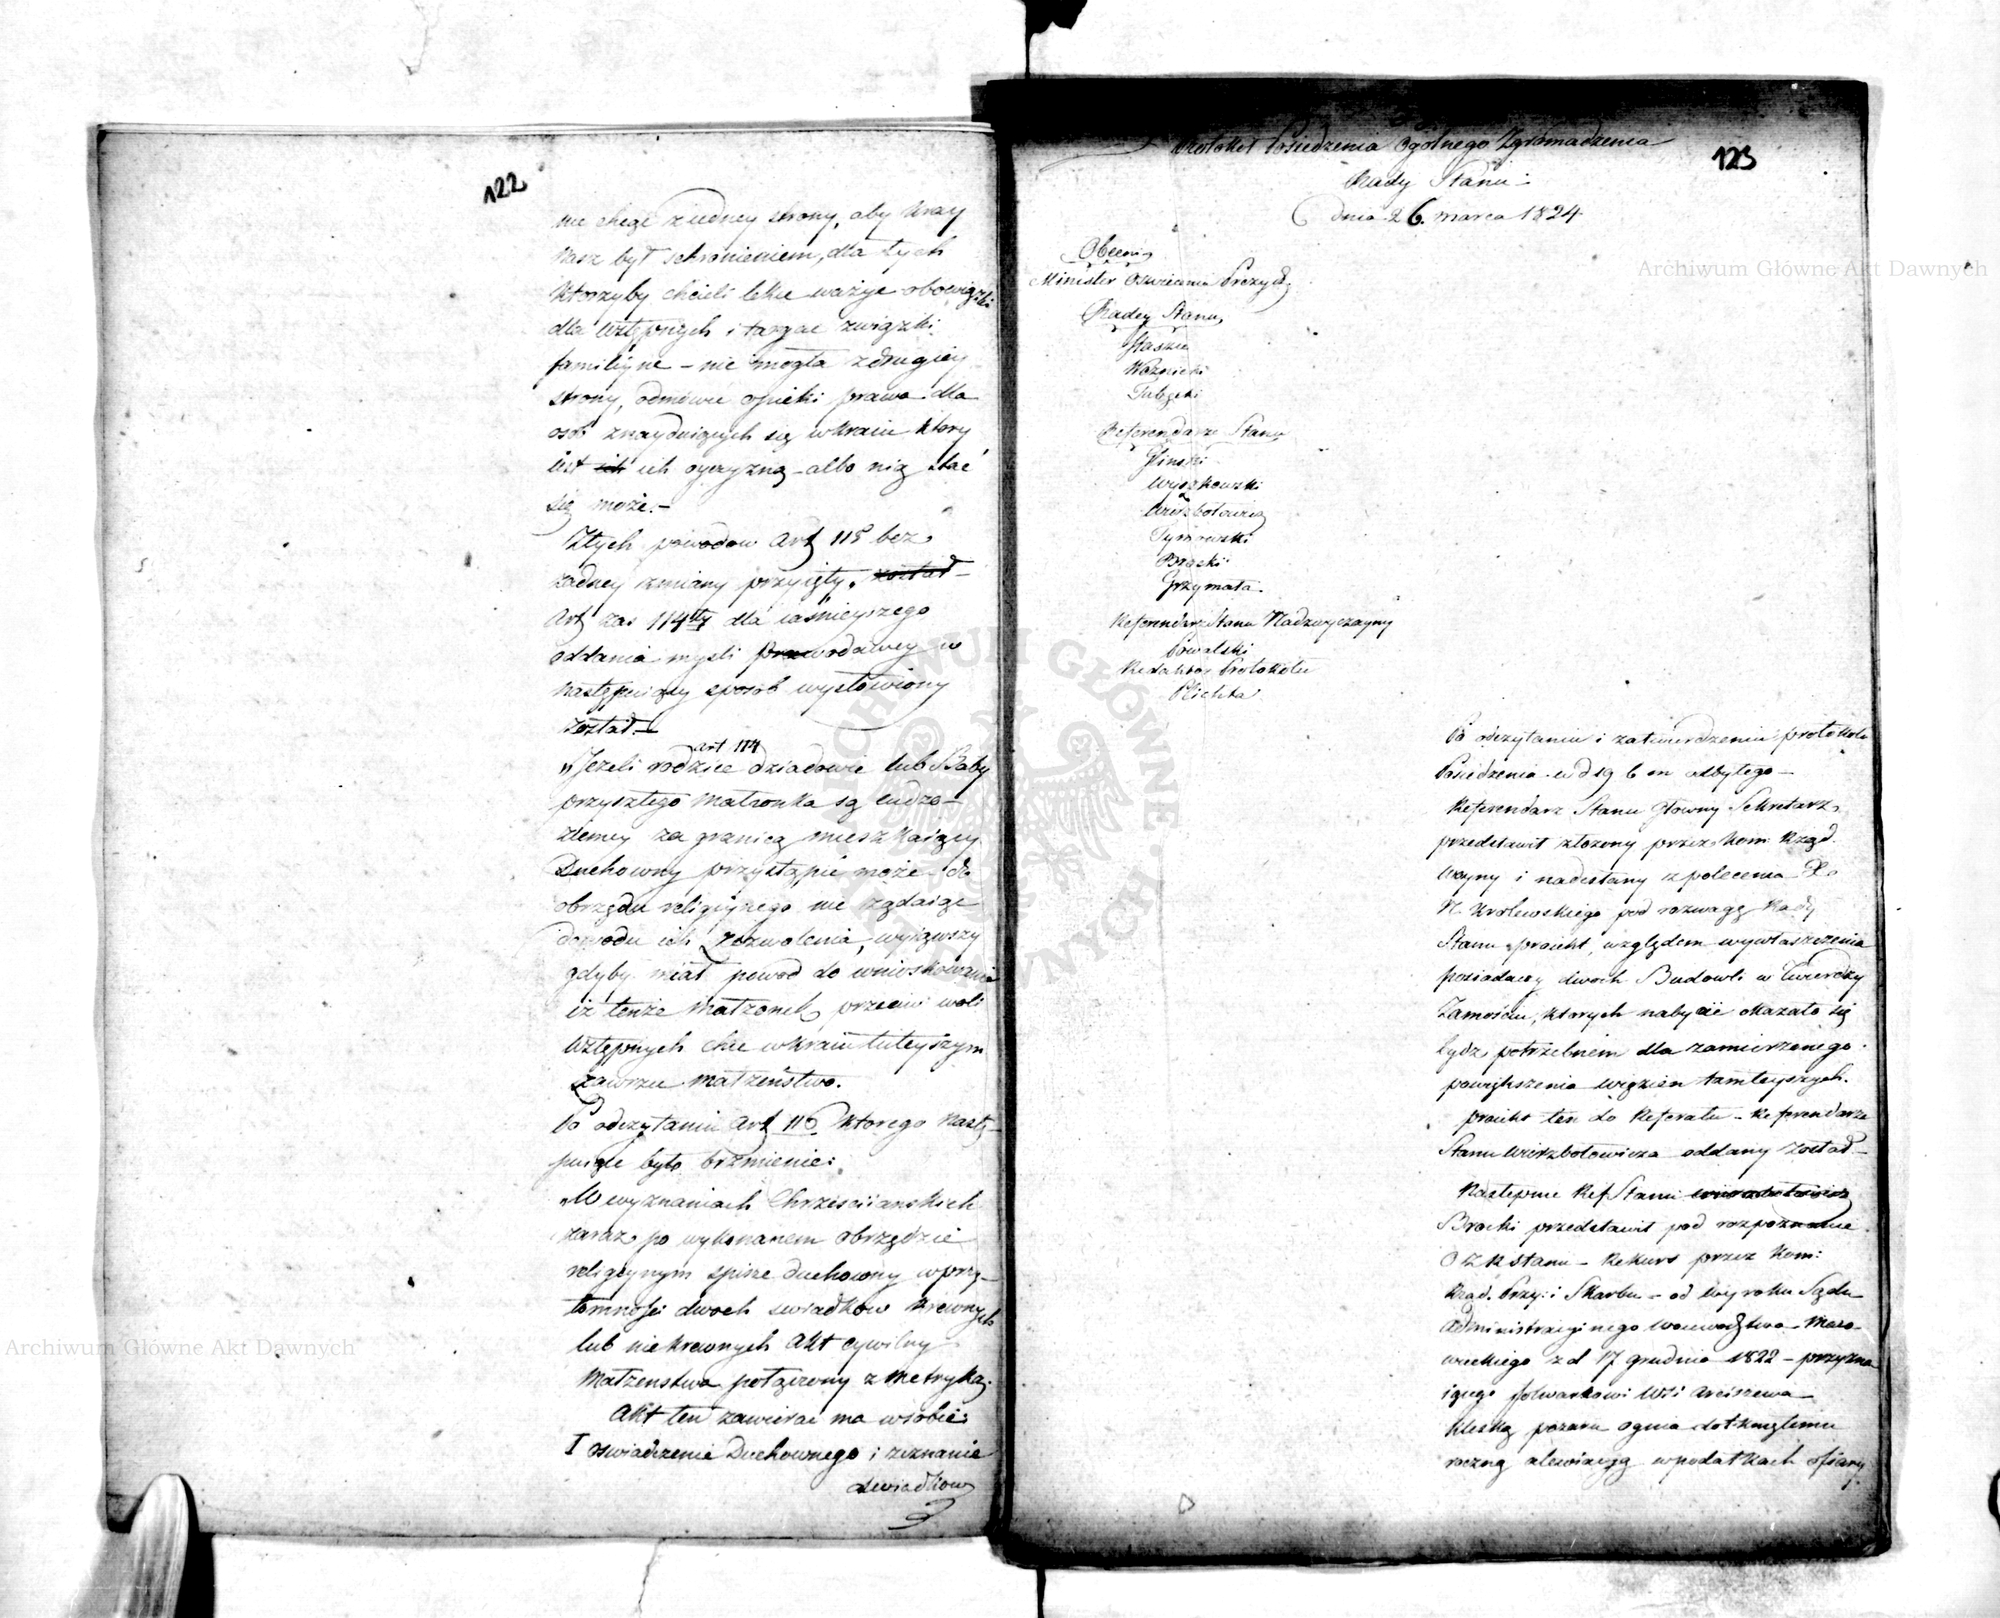 122
nie chcąc z iedney strony, aby kray
nasz był schronieniem, dla tych
ktorzyby chcieli lekce ważyc obowiązki
dla wstępnych i targac związki
familiyne – nie mogła z drugiey
strony, odmówic opieki prawa dla
osób znayduiących się w kraiu ktory
iest ich oyczyzną – albo nią stać
się może. –
Z tych powodow Art 115 bez
żadney zmiany przyięty, został –
Art zas 114ty dla iaśnieyszego
oddania mysli prawodawcy w
następuiący sposób wysłowiony
został. –
Art 114
„Jeżeli rodzice dziadowie lub Baby
przyszłego Małżonka są cudzo-
ziemcy za granicą mieszkaiący
Duchowny przystąpić może do
obrzędu religiynego nie żądaiąc
dowodu ich zezwolenia, wyiąwszy
gdyby miał powod do wnioskowania
iż tenże Małżonek, przeciw woli
Wstępnych chce w kraiu tuteyszym
zawrzec małżeństwo.
Po odczytaniu Art 116 ktorego nastę-
puiące było brzmienie:
„W wyznaniach Chrześciianskich
zaraz po wykonanem obrzędzie
religiynym spisze duchowny w przy-
tomności dwoch swiadkow krewnych
lub niekrewnych Akt cywilny
Małzenstwa połączony z metryką.
Akt ten zawierac ma w sobie:
I oswiadczenie Duchownego i zeznanie
swiadkow
123
Protokół Posiedzenia Ogólnego Zgromadzenia
Rady Stanu
dnia 26. marca 1824
Obecni
Minister Oswiecenia Prezyd:
Radcy Stanu
Staszic
Woznicki
Tulęcki
Referendarze Stanu
Gliński
Wyczkowski
Wierzbołowicz
Tymowski
Brocki
Grzymała
Referendarz Stanu Nadzwyczayny
Kowalski
Redaktor Protokołu
Plichta
Po odczytaniu i zatwierdzeniu protokołu
Posiedzenia w d 19 b m odbytego –
Referendarz Stanu Główny Sekretarz
przedstawił złożony przez Kom: Rząd.
Woyny i nadesłany z polecenia X.
N. Krolewskiego pod rozwagę Rady
Stanu proiekt, względem wywłaszczenia
posiadaczy dwoch Budowli w Twierdzy
Zamościu, ktorych nabycie okazało się
bydz potrzebnem dla zamierzonego
powiększenia więzien tamteyszych.
proiekt ten do Referatu – Referendarza
Stanu Wierzbołowicza oddany został –
Następnie Ref Stanu
Brocki przedstawił pod rozpoznanie
O Z R Stanu – Rekurs przez Kom:
Rząd. Przy: i Skarbu – od wyroku Sądu
Administracyinego Woiewodztwa Mazo-
wieckiego z d 17 grudnia 1822 – przyzna
iącego folwarkowi Wsi Arciszewa
klęską pożaru ognia dotkniętemu
roczną alewiacyą w podatkach ofiary
Archiwum Główne Akt Dawnych
Archiwum Główne Akt Dawnych
ARCHIWUM GŁÓWNE AKT DAWNYCH